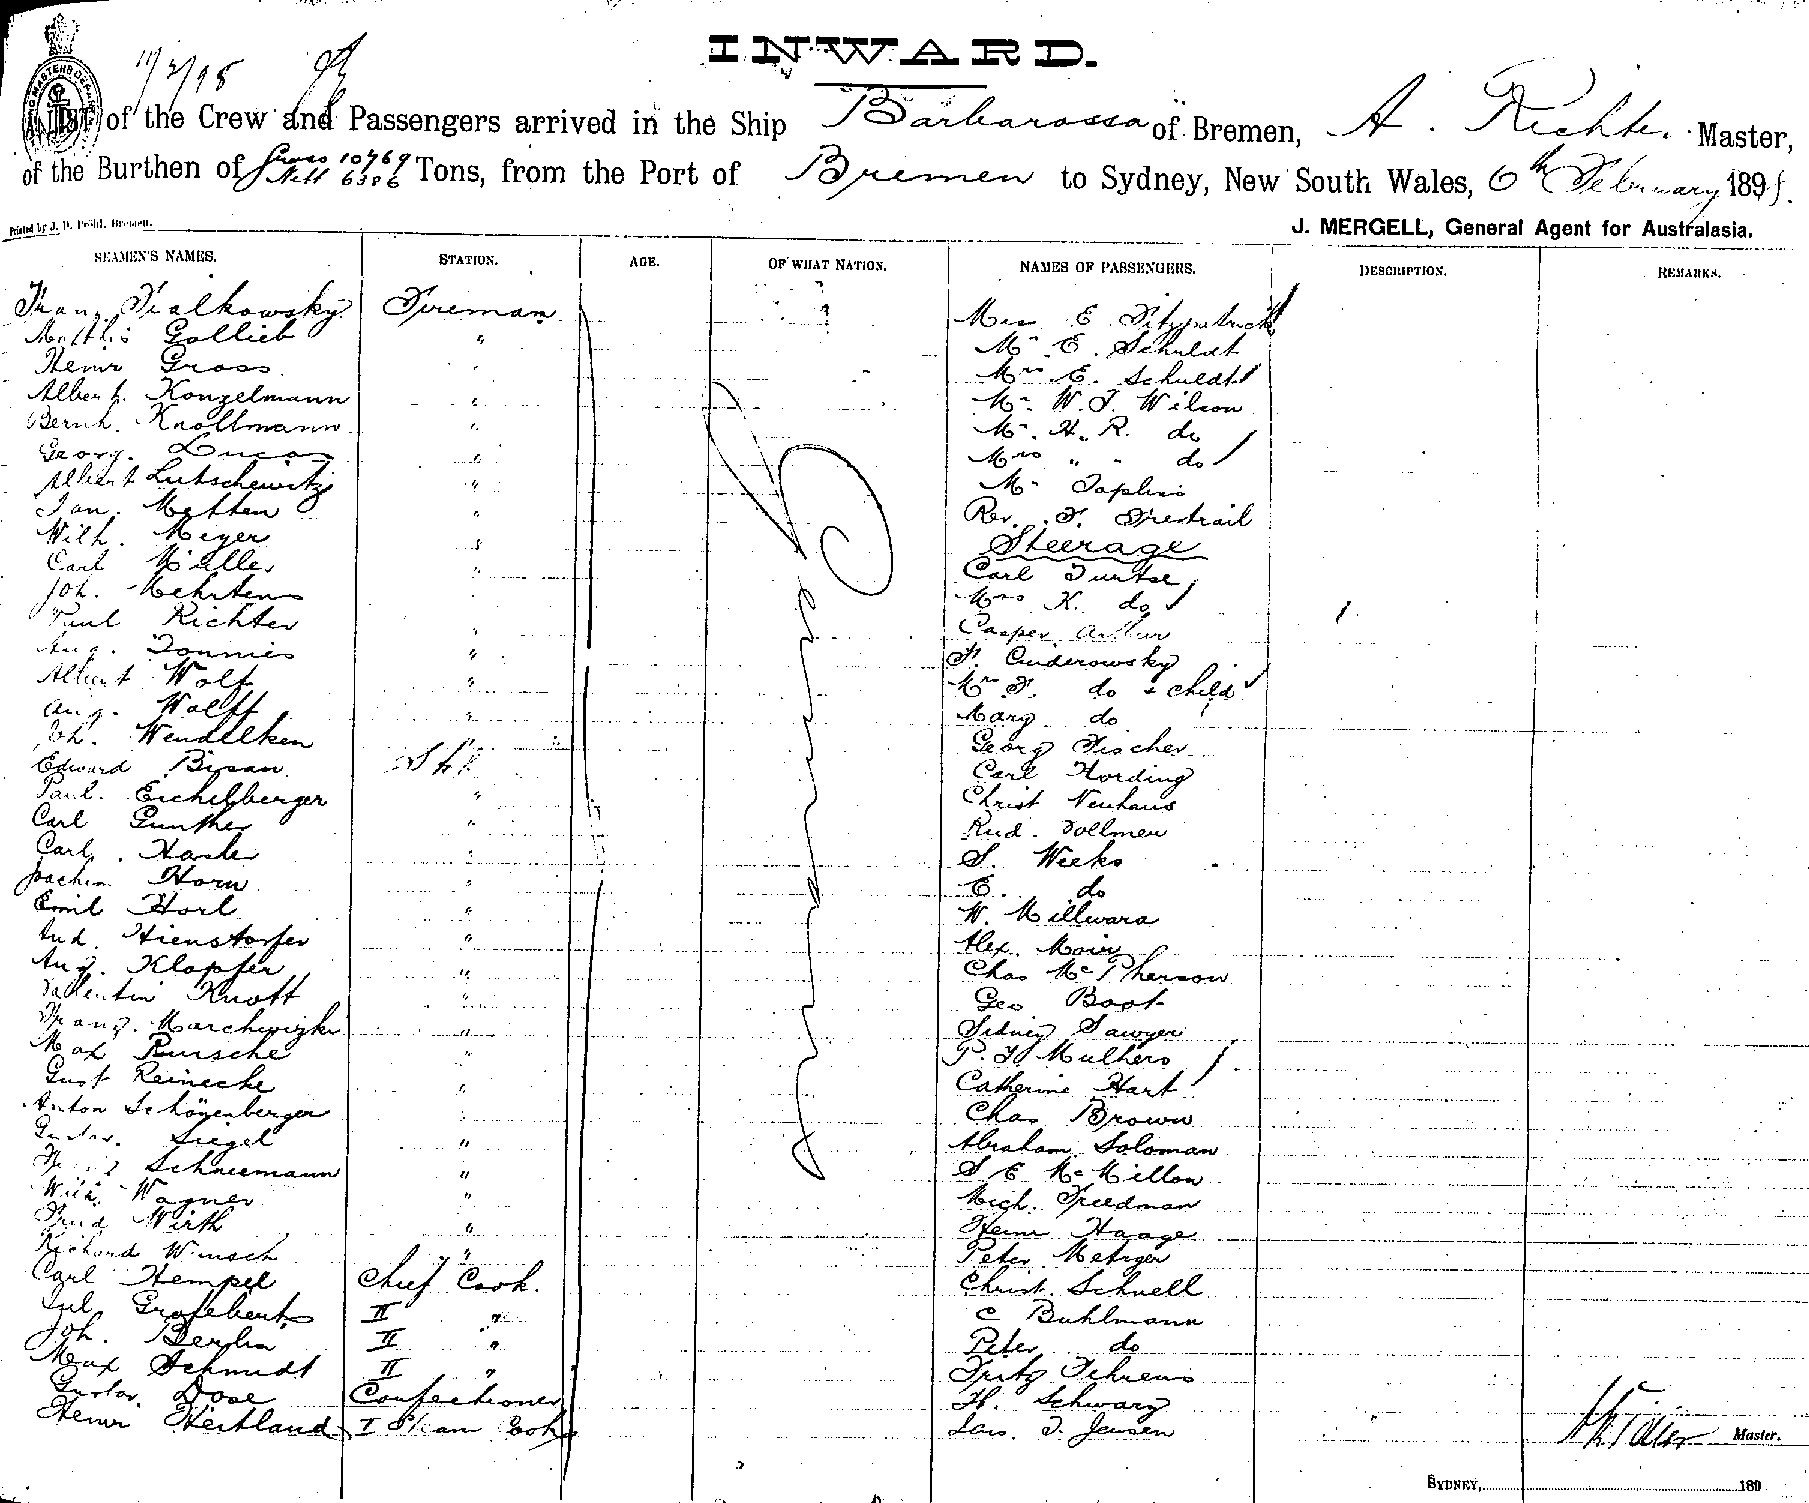 INWARD.
11/2/98
LIST of the Crew and Passengers arrived in the Ship Barbarossa of Bremen, A. Richter Master,
of the Burthen of Gross 10769 Nett 6386 Tons, from the Port of Bremen to Sydney, New South Wales, 6th February 1898.
Printed by J. D. Pröhl, Bremen.
J. MERGELL, General Agent for Australasia.
SEAMEN'S NAMES. STATION. AGE. OF WHAT NATION. NAMES OF PASSENGERS. DESCRIPTION. REMARKS.
Franz Fialkowsky Fireman Miss E Fitzpatrick
Gollieb " Mr E. Schuldt
Heinr Gross " Mrs E. Schuldt
Albert Konzelmann " Mr W. J. Wilson
Bernh. Knollmann " Mr. H. R. do
Georg. Lucas " Mrs " " do
Albert Lutschewitz " Mr
Jan. Metten " Rev. Trestrail
Wilh. Meyer " Steerage
Carl Müller " Carl
Joh. Mehrtens " Mrs K. do
Paul Richter " Casper Arthur
Aug. Tonnies " F.
Albert Wolf " Mrs F. do + child
Aug. Wolff " Marg. do
Joh. Wendelken " Georg Fischer
Edward Carl Hording
Paul. Eichelberger " Christ Neuhaus
Carl Gunther " Rud. Vollmer
Carl. " S. Weeks
Joachim Horn " E. do
Emil Horl " W. Millward
And. Hienstorfer " Alex. Moir
Aug. Klopfer " Chas McPherson
Valentin Knott " Geo Boot
Franz. " Sidney Sawyer
Max Pursche " P. J. Mulhern
Gust Reinecke " Catherine Hart
Anton Schönenberger " Chas Brown
Gustav. Siegel " Abraham Soloman
Schneemann " S E McMillan
Wilh. Wagner " Mich. Freedman
Fried Wirth " Heinr Haage
Richard Wunsch " Peter Metzger
Carl Hempel Chief Cook. Christ. Schnell
Jul. II " C Buhlmann
Joh. Berlin II " Peter do
Max Schmidt II " Fritz Fehrens
Gustav. Dose Confectioner H. Schwarz
Heinr Heitland I Steam Cook J. Jensen
Germany
Master.
SYDNEY, 189